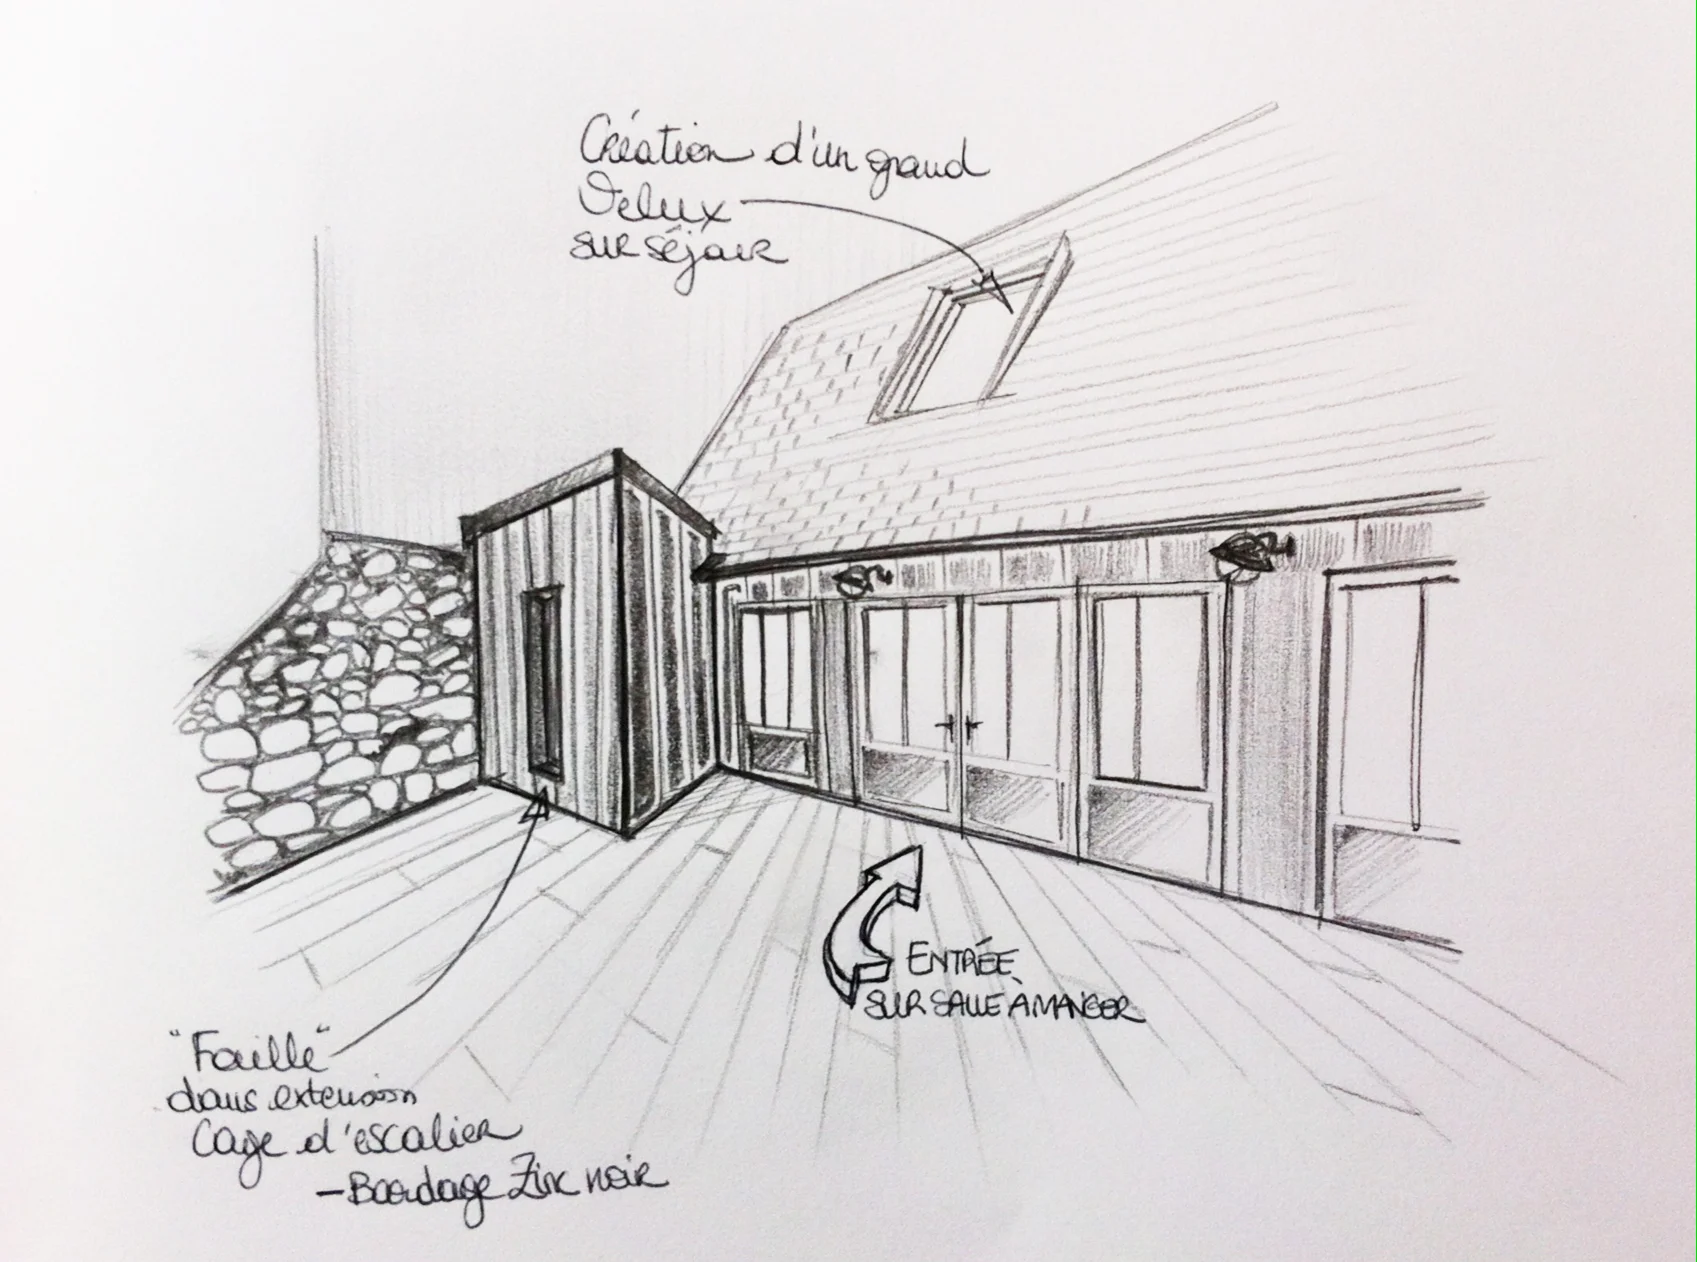 Création d'un grand
Velux
sur séjour
ENTRÉE
SUR SALLE À MANGER
"Faille"
dans extension
Cage d'escalier
- Bardage Zinc noir